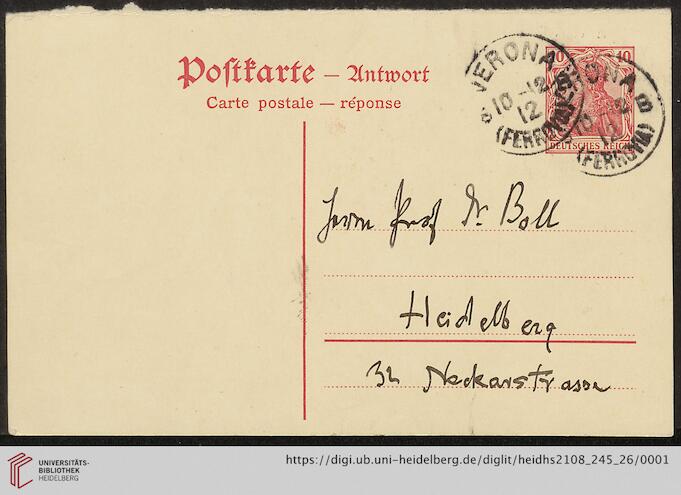 Postkarte — Antwort
Carte postale — réponse
VERONA
10-12
12
(FERROVIA)
VERONA B
10 12
12
(FERROVIA)
10 10
DEUTSCHES REICH
Herrn Prof Dr. Boll
Heidelberg
32 Neckarstrasse
UNIVERSITÄTS-
BIBLIOTHEK
HEIDELBERG
https://digi.ub.uni-heidelberg.de/diglit/heidhs2108_245_26/0001